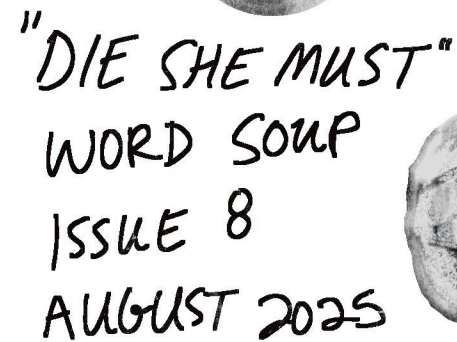 "DIE SHE MUST"
WORD SOUP
ISSUE 8
AUGUST 2025